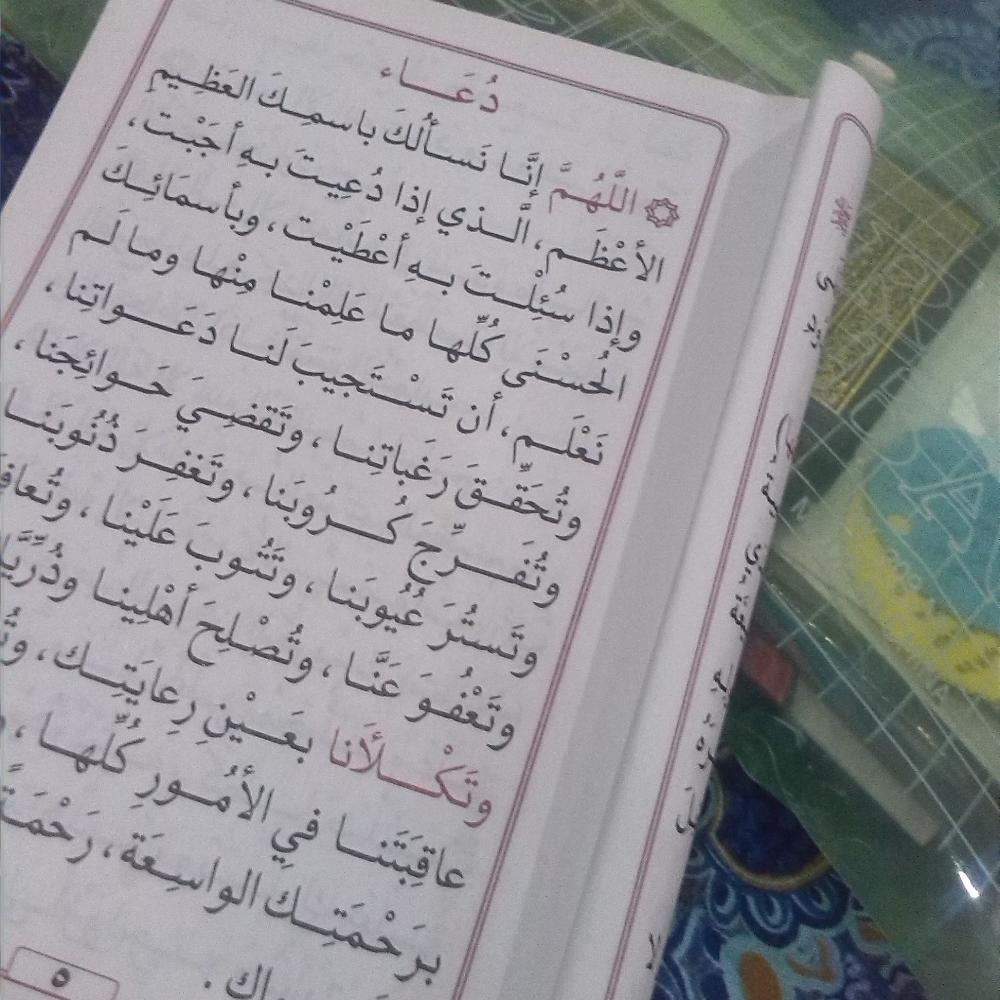 دُعَــاء
اللَّهُمَّ إِنَّـا نَسـأَلُكَ بِاسمِـكَ العَظِـيمِ
الأَعْظَـمِ، الَّـذي إذا دُعِيـتَ بـهِ أَجَبْـت،
وإذا سُئِلْــتَ بـهِ أَعْطَيْــت، وبأَسمَائِــكَ
الحُسْنَى كُلِّها ما عَلِمْنـا مِنْها وما لَـم
نَعْلَــم، أن تَسْــتَجِيبَ لَنـا دَعَــواتِنا،
وتُحَقِّــقَ رَغَباتِنـا، وتَقْضِـيَ حَـوائِجَنا،
وتُفَــرِّجَ كُــرُوبَنا، وتَغْفِـرَ ذُنُوبَنــا
وتَستُرَ عُيُوبَنا، وتَتُوبَ عَلَيْنا،
وتَعْفُـوَ عَنَّـا، وتُصْلِحَ أَهْلِينـا
وتَكْــلَأَنا بعَــيْنِ رِعايَتِــك،
عاقِبَتَنــا في الأُمُــورِ كُلِّهــا،
برَحْمَتِــك الواسِعَة،
٥
A